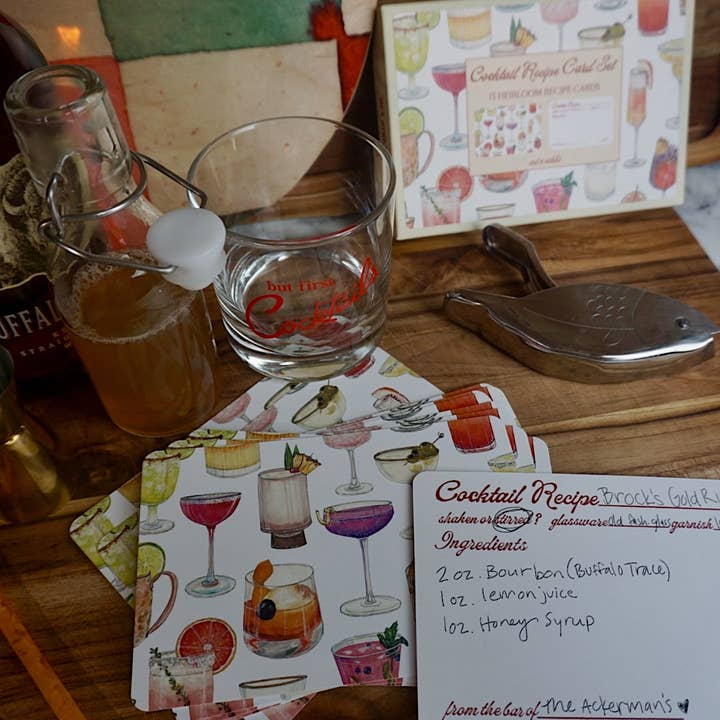 Cocktail Recipe Card Set
15 HEIRLOOM RECIPE CARDS
but first
Cocktails
UFFAL
STRA
Cocktail Recipe Brock's Gold Ru
shaken or stirred? glassware old fash. glass garnish
Ingredients
2 oz. Bourbon (Buffalo Trace)
1 oz. lemon juice
1 oz. Honey Syrup
from the bar of The Ackerman's ♥